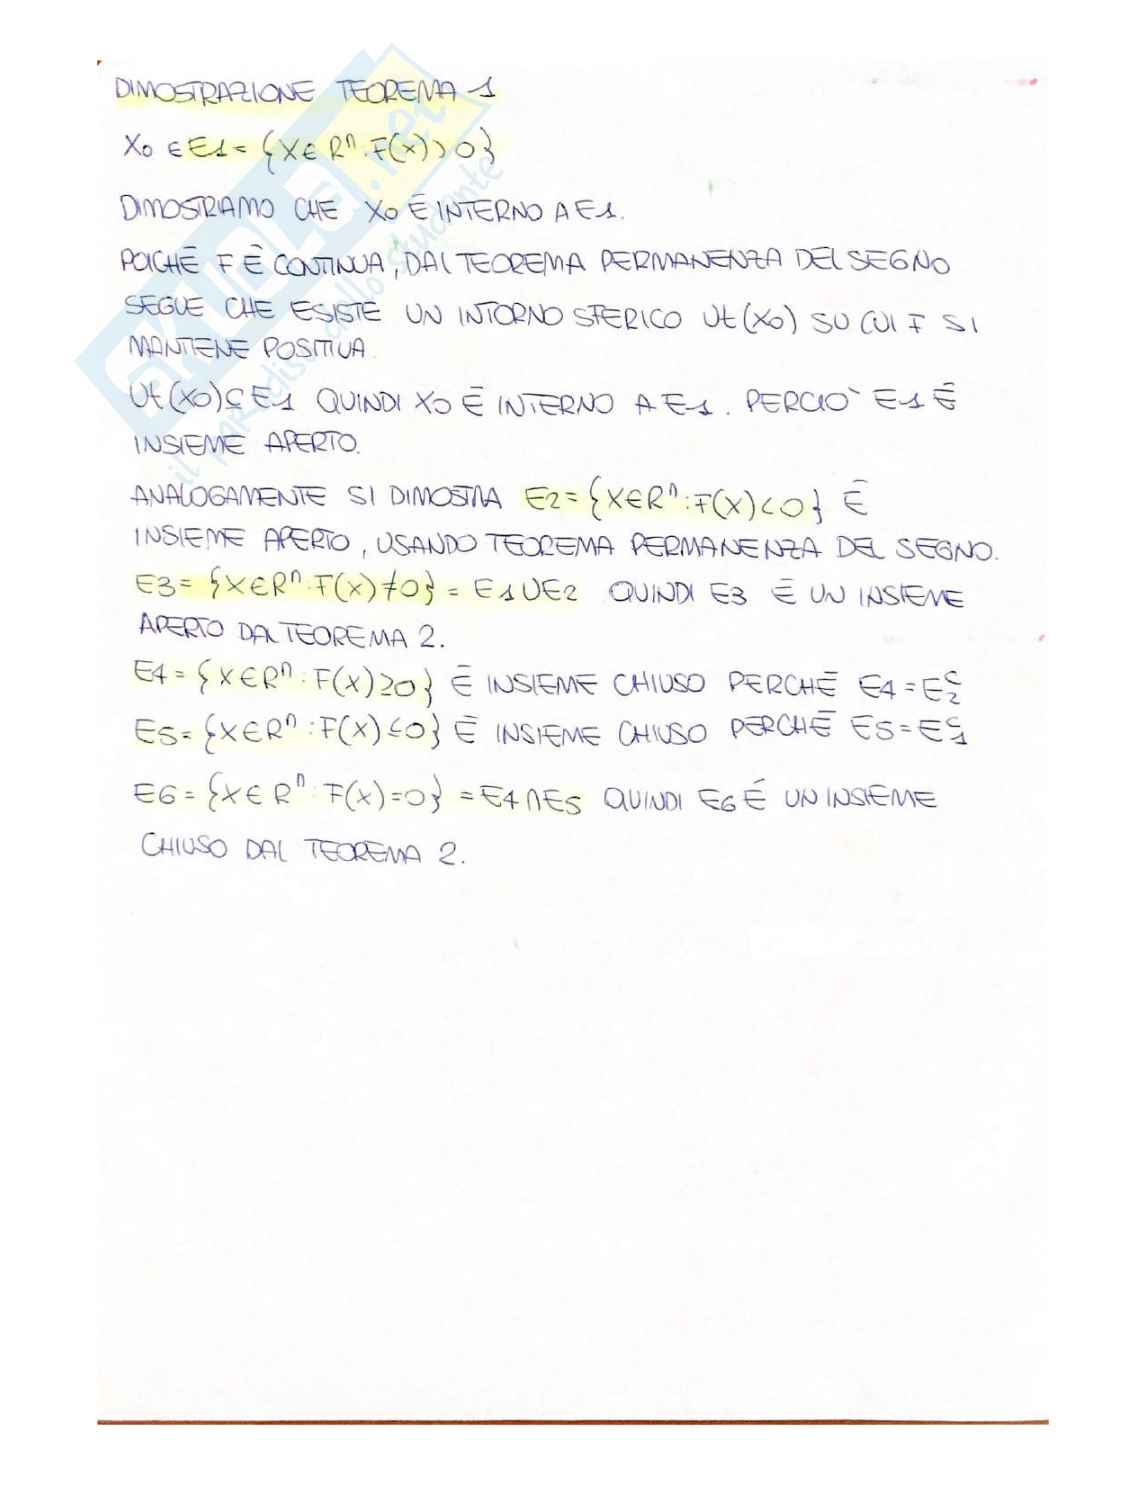 DIMOSTRAZIONE TEOREMA 1
X0 ∈ E1 = {X∈Rⁿ: F(X)>0}
DIMOSTRIAMO CHE X0 È INTERNO A E1.
POICHÈ F È CONTINUA, DAL TEOREMA PERMANENZA DEL SEGNO
SEGUE CHE ESISTE UN INTORNO SFERICO Ut(X0) SU CUI F SI
MANTIENE POSITIVA
Ut(X0)⊆E1 QUINDI X0 È INTERNO A E1. PERCIO' E1 È
INSIEME APERTO.
ANALOGAMENTE SI DIMOSTRA E2={X∈Rⁿ: F(X)<0} È
INSIEME APERTO, USANDO TEOREMA PERMANENZA DEL SEGNO.
E3 = {X∈Rⁿ: F(X)≠0} = E1∪E2 QUINDI E3 È UN INSIEME
APERTO DAL TEOREMA 2.
E4 = {X∈Rⁿ: F(X)≥0} È INSIEME CHIUSO PERCHÈ E4 = E₂ᶜ
E5 = {X∈Rⁿ: F(X)≤0} È INSIEME CHIUSO PERCHÈ E5 = E₁ᶜ
E6 = {X∈Rⁿ: F(X)=0} = E4∩E5 QUINDI E6 È UN INSIEME
CHIUSO DAL TEOREMA 2.
SKUOLA.net
il paradiso dello studente